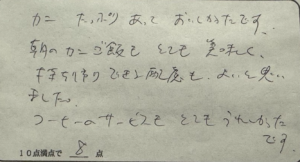 カニ たっぷりあって おいしかったです。
朝のカニご飯も とても 美味しく、
できる配慮も よいと思い
ました。
コーヒーのサービスも とても うれしかった
です。
10点満点で 8 点